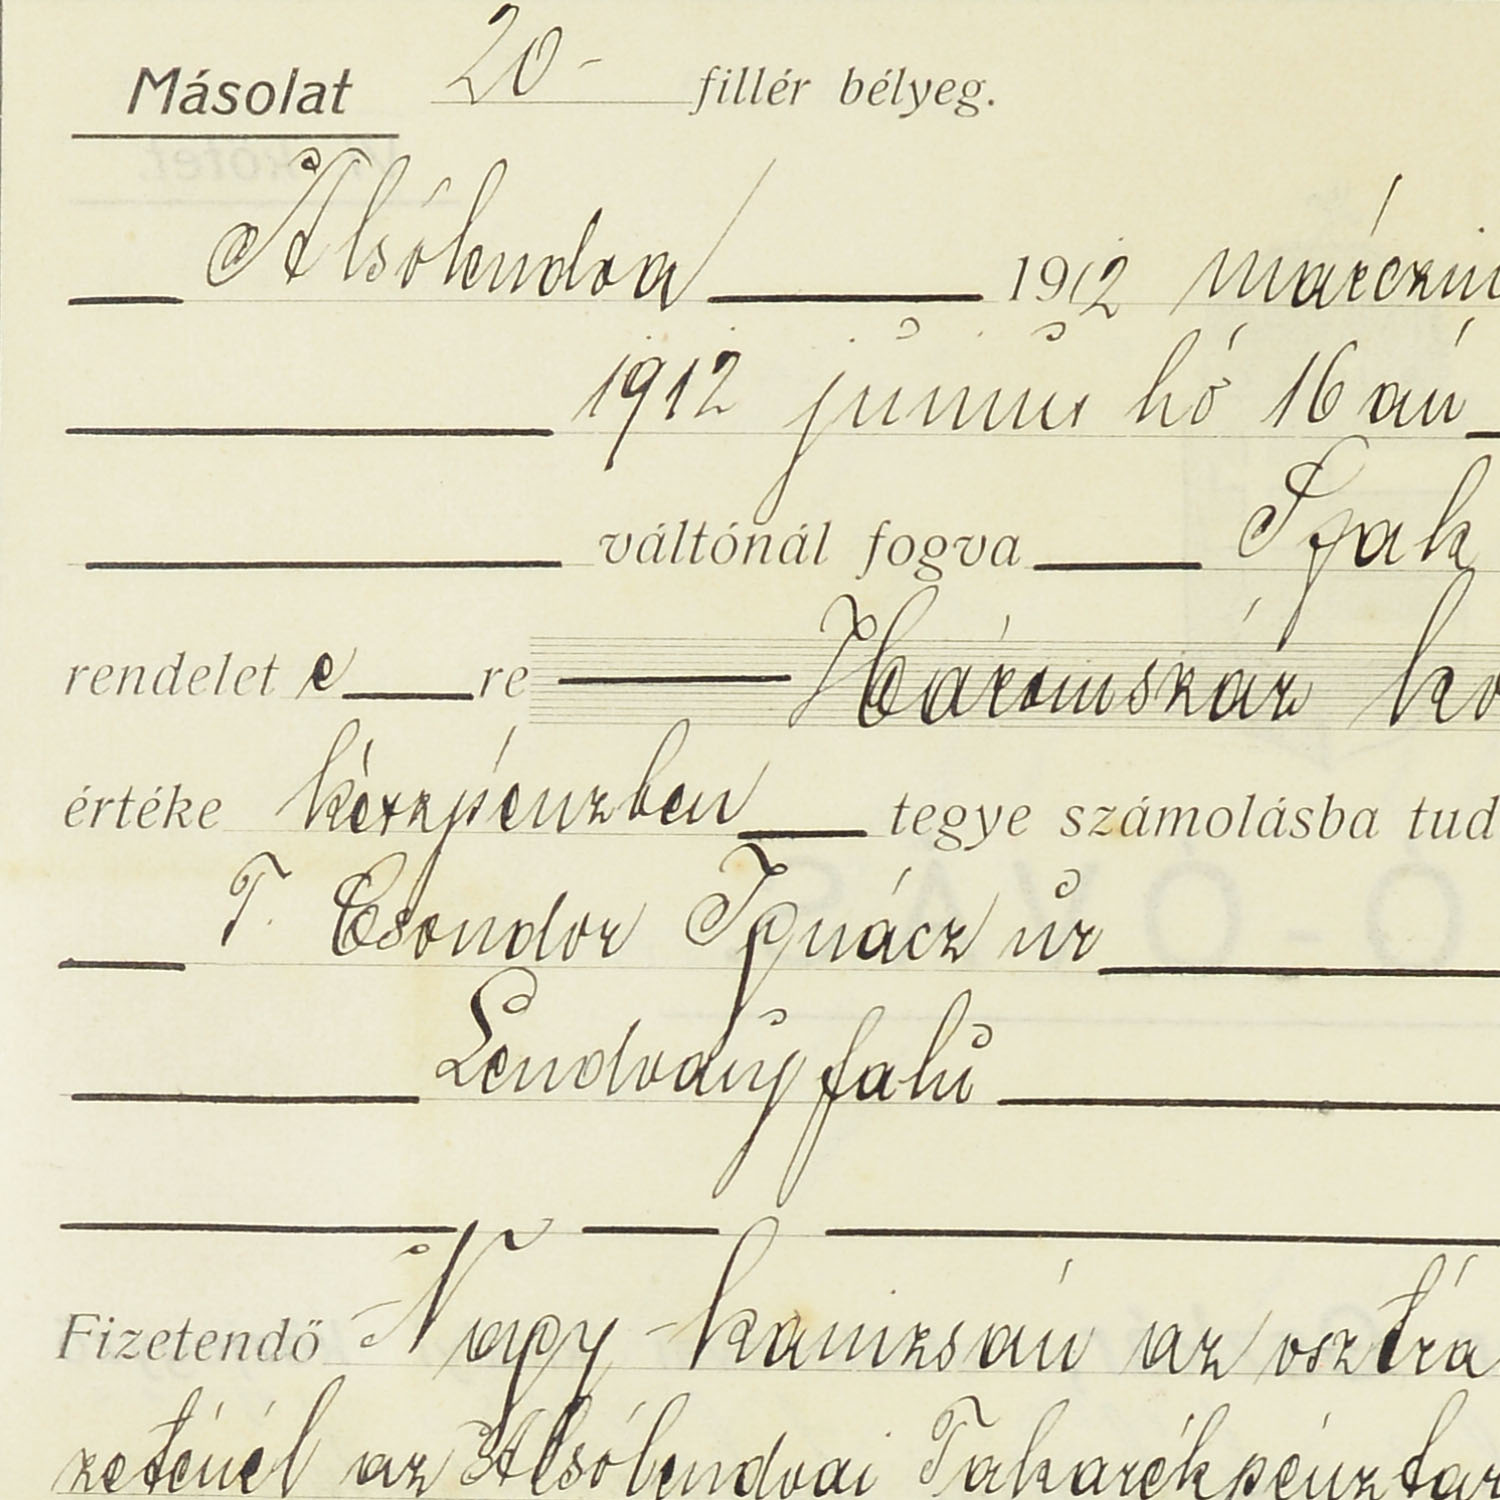 Másolat 20- fillér bélyeg.
Alsólendva 1912 márczi
1912 június hó 16 án
váltónál fogva
rendelet e re Háromszáz ko
értéke készpénzben tegye számolásba tud
T. Csondor Ignácz úr
Lendvaujfalu
Fizetendő Nagy-kanizsán az osztrá
zeténél az Alsólendvai Takarékpénztár